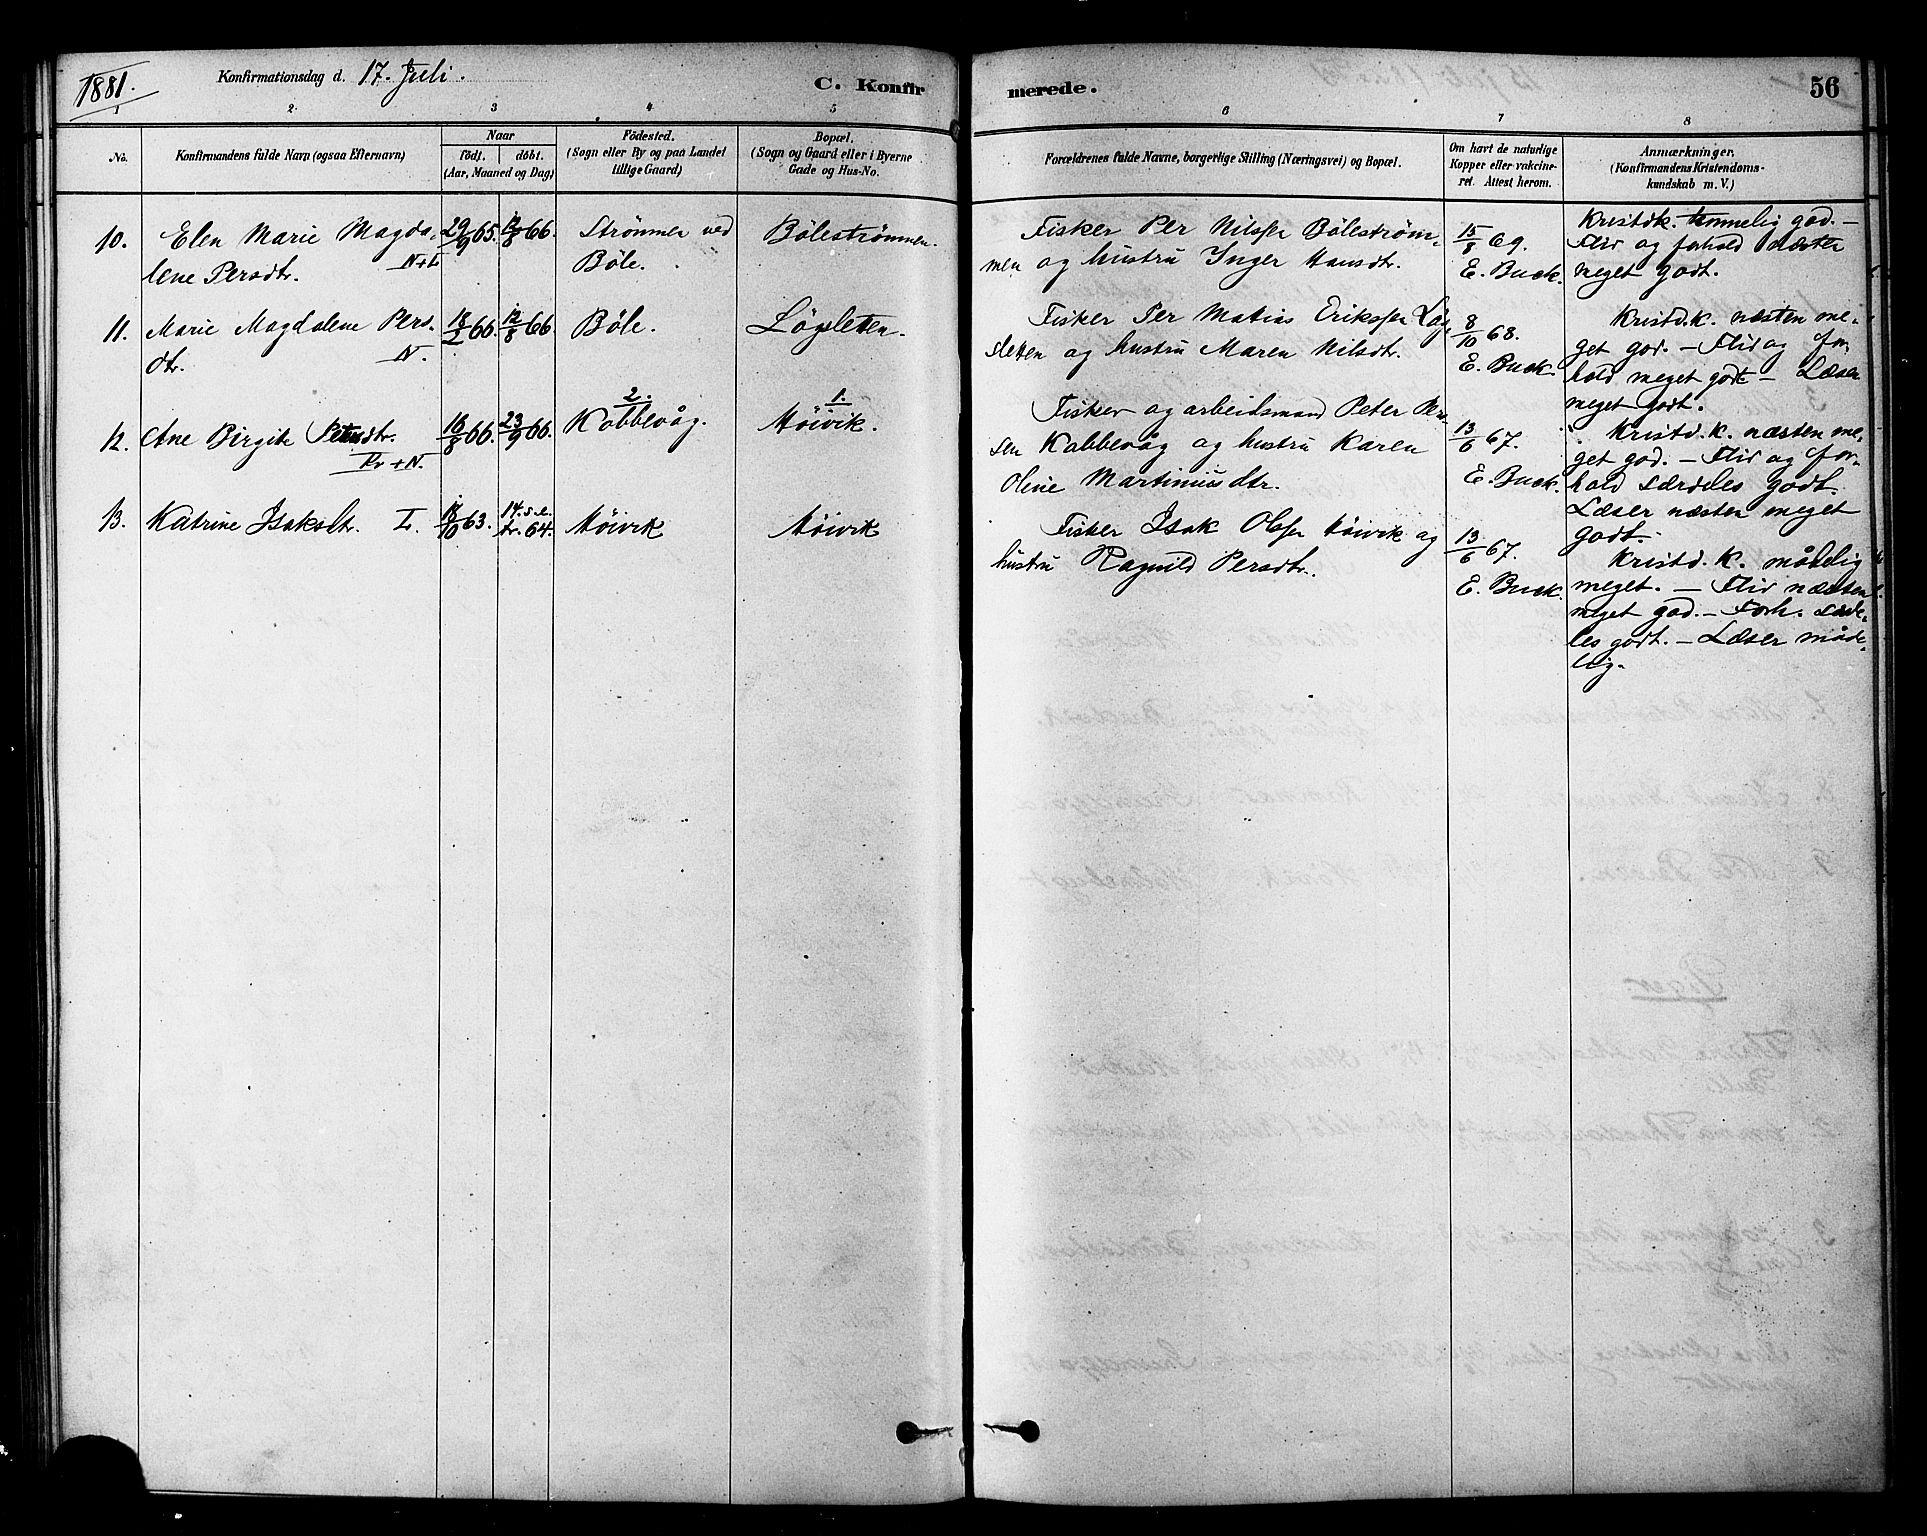 1881.
Konfirmationsdag d. 17. Juli.
C. Konfir
merede.
56
1
2
3
4
5
6
7
8
No.
Konfirmandens fulde Navn (ogsaa Efternavn)
Naar
födt.
döbt.
(Aar, Maaned og Dag)
Födested.
(Sogn eller By og paa Landet
tillige Gaard)
Bopæl.
(Sogn og Gaard eller i Byerne
Gade og Hus-No.
Forældrenes fulde Navne, borgerlige Stilling (Næringsvei) og Bopæl.
Om havt de naturlige
Kopper eller vakcine-
ret. Attest herom.
Anmærkninger.
(Konfirmandens Kristendoms-
kundskab m. V.)
10.
Elen Marie Magda-
lene Persdtr.
N+L
29/9 65.
12/8 66.
Strömmen ved
Böle.
Böleströmmen.
Fisker Per Nilssen Böleström-
men og hustru Inger Hansdtr.
15/8 69.
E. Buck.
Kristdk. temmelig god. –
Flid og forhold næsten
meget godt.
11.
Marie Magdalene Pers-
dtr.
N.
18/2 66.
12/8 66
Böle.
Lögsletten.
Fisker Per Matias Erikssen Lög-
sletten og hustru Maren Nilsdtr.
8/10 68.
E. Buck.
Kristd.k. næsten me-
get god. – Flid og for-
hold meget godt – Læser
meget godt.
12.
Ane Birgite Petersdtr.
Kv+N.
16/8 66.
23/9 66.
2.
Kobbevåg.
1.
Möivik.
Fisker og arbeidsmand Peter Han-
sen Kobbevåg og hustru Karen
Oline Martiniusdtr.
13/6 67.
E. Buck.
Kristd.k. næsten me-
get god. – Flid og for-
hold særdeles godt.
Læser næsten meget
godt.
13.
Katrine Isaksdtr.
L.
18/10 63.
14. s.e.
tr. 64.
Möivik
Möivik
Fisker Isak Olssen Möivik og
hustru Ragnild Persdtr.
13/6 67.
E. Buck.
Kristd. K. mådelig
meget. – Flid næsten
meget god. – Forh. særde-
les godt. – Læser måde-
lig.